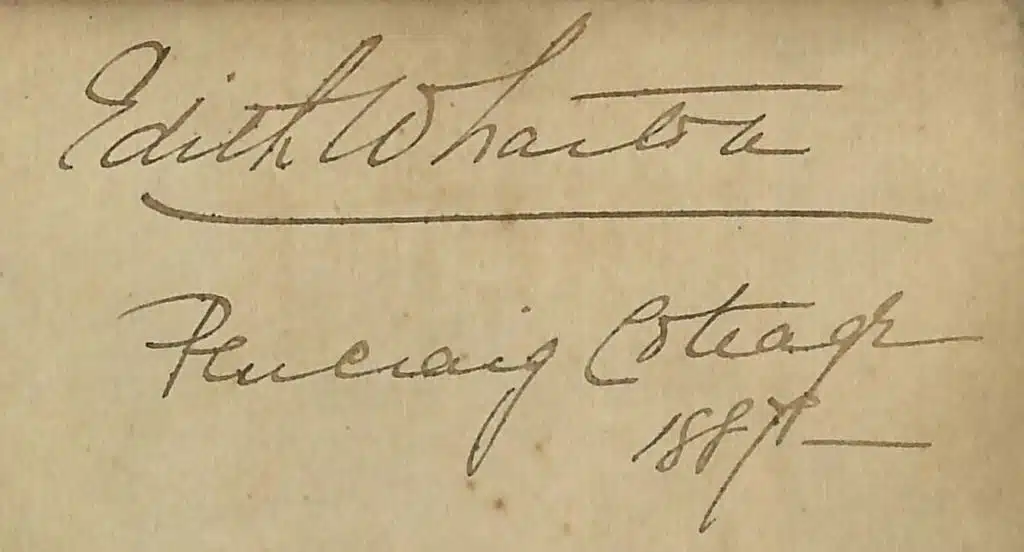 Edith Wharton
Pencraig Cottage
1887 —